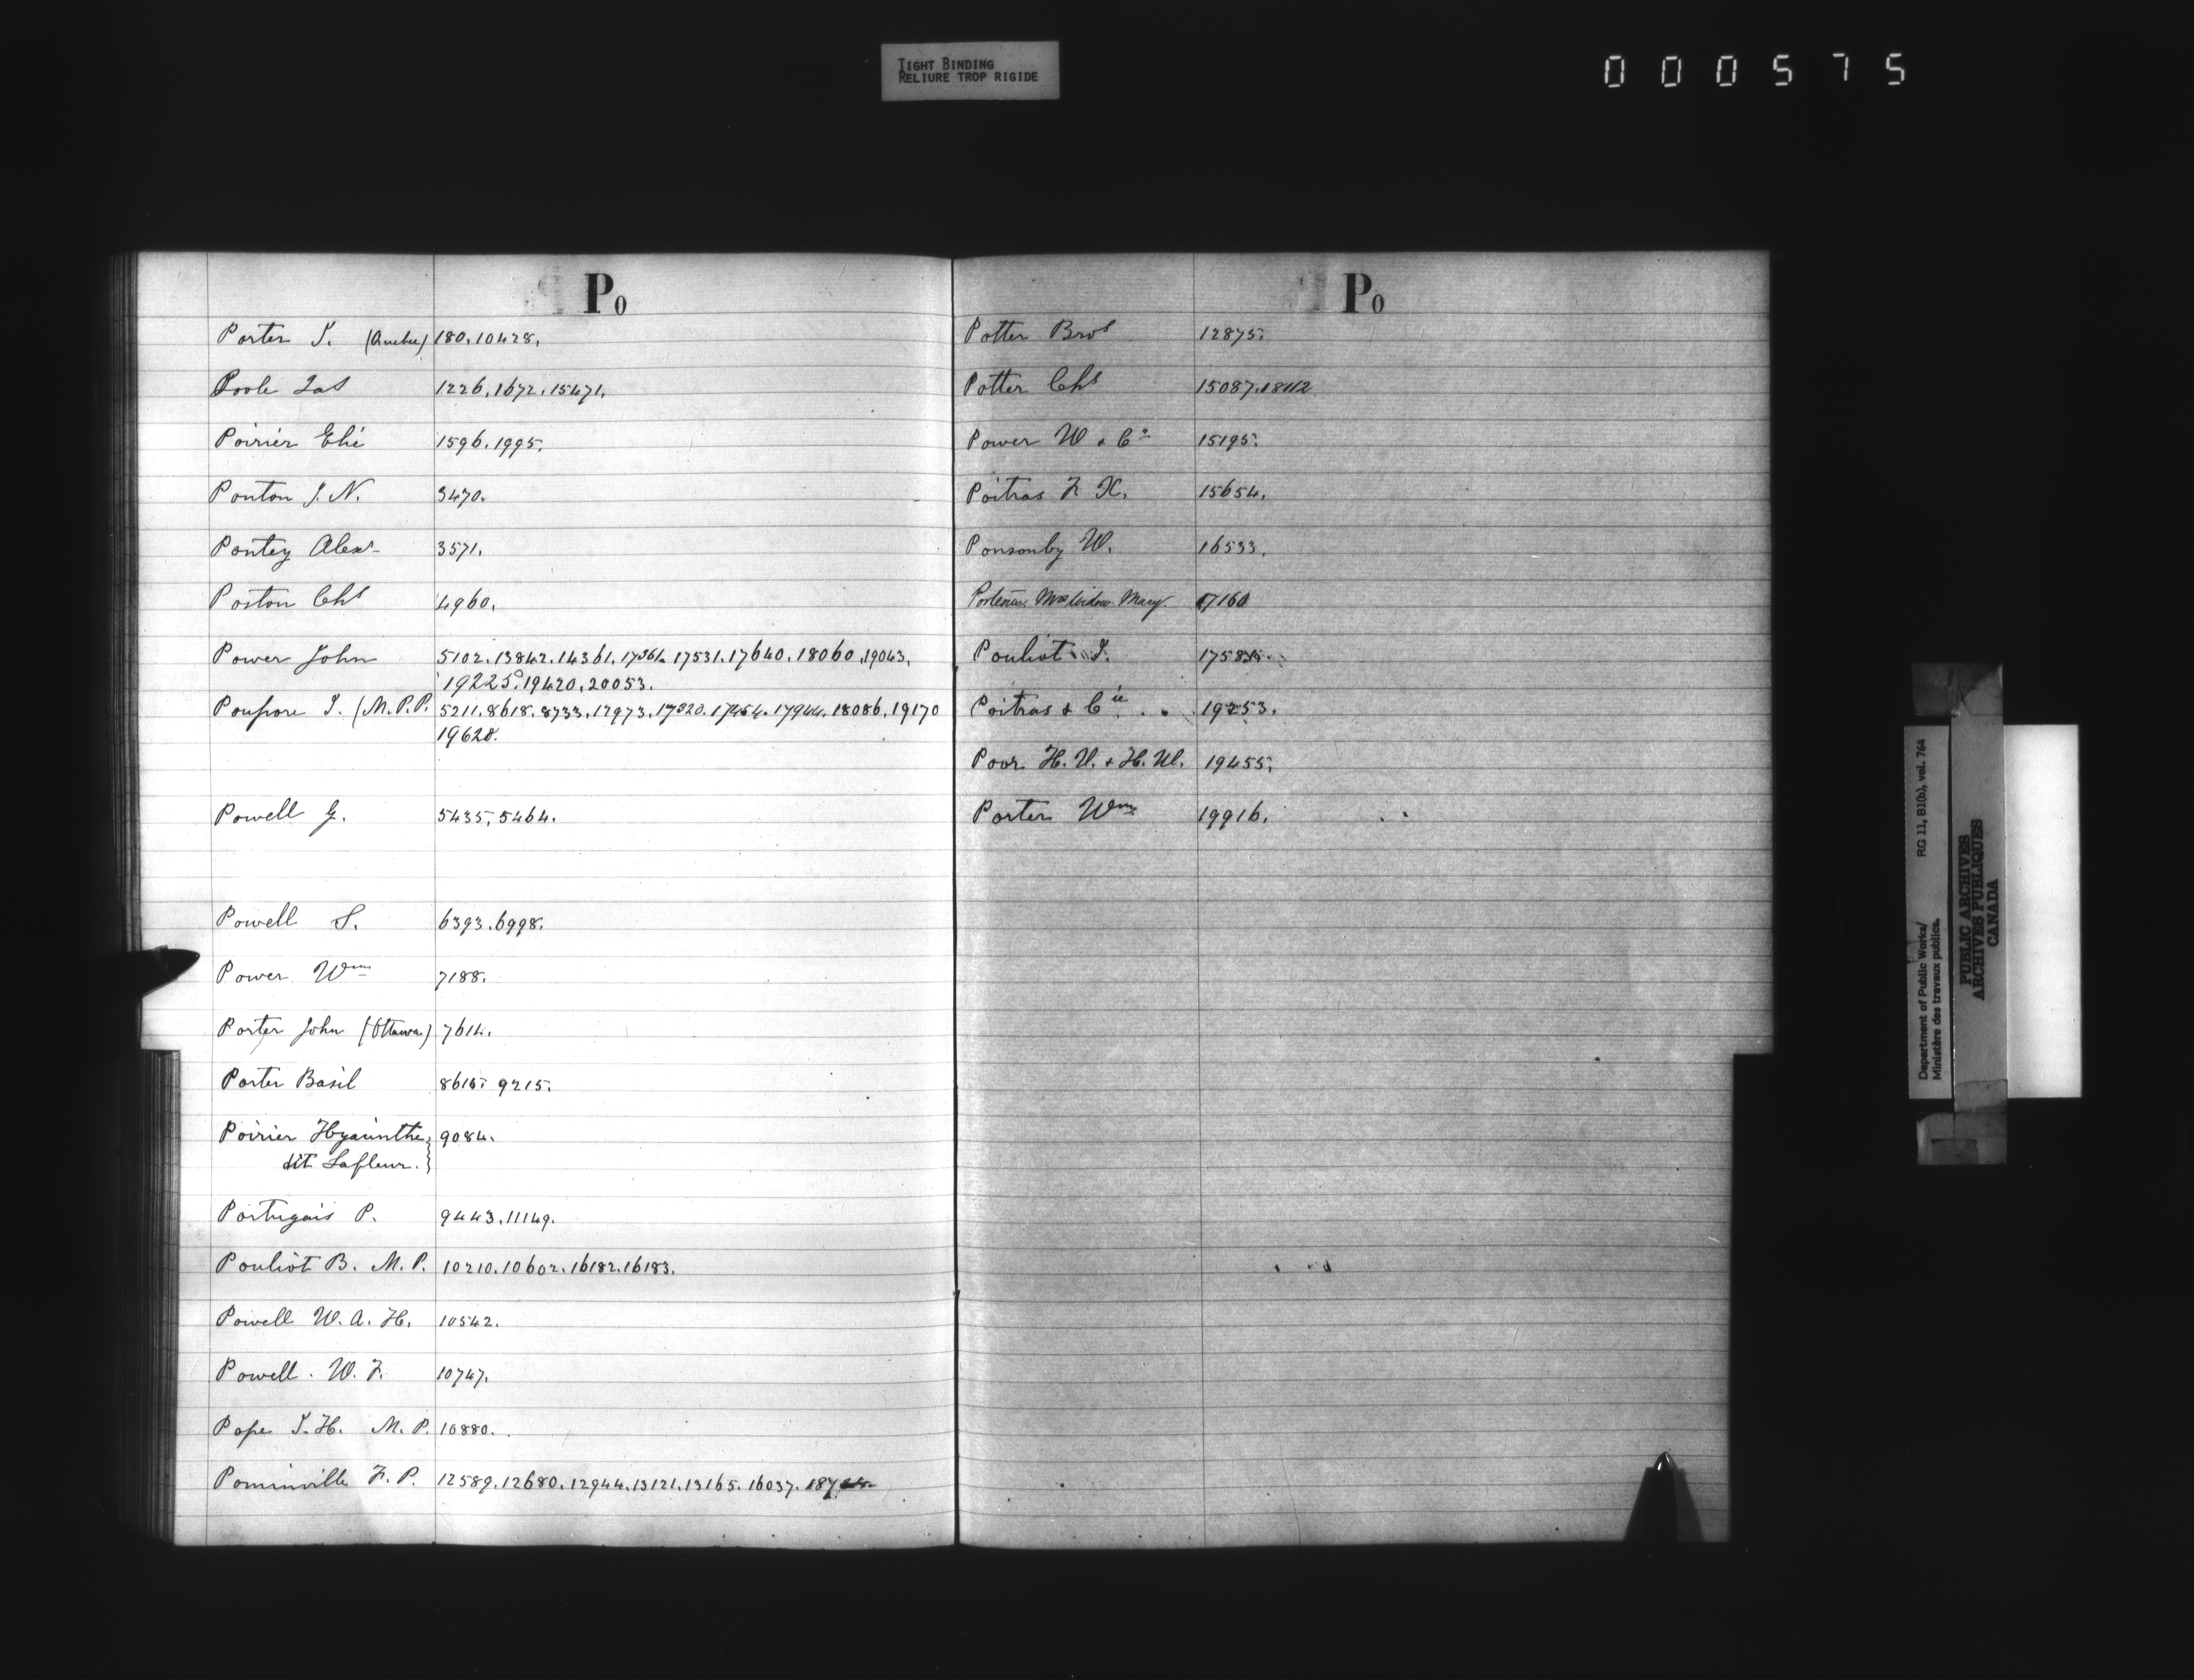 TIGHT BINDING
RELIURE TROP RIGIDE
000575
Po
Porter J. (Quebec) 180. 10428.
Poole Jas 1226. 1672. 15471.
Poirier Elie 1596. 1995.
Ponton J. N. 3470.
Pontey Alexr 3571.
Poston Chs 4960.
Power John 5102. 13842. 14361. 17361. 17531. 17640. 18060. 19043.
19225. 19420. 20053.
Poupore J. (M.P.P. 5211. 8618. 8733. 12973. 17320. 17454. 17944. 18086. 19170
19628.
Powell G. 5435. 5464.
Powell S. 6393. 6998.
Power Wm 7188.
Porter John (Ottawa) 7614.
Porter Basil 8615. 9215.
Poirier Hyacinthe } 9084.
dit Lafleur. }
Portugais P. 9443. 11149.
Pouliot B. M.P. 10210. 10602. 16182. 16183.
Powell W. A. H. 10542.
Powell. W. F. 10747.
Pope J. H. M.P. 10880.
Pominville F. P. 12589. 12680. 12944. 13121. 13165. 16037.
Po
Potter Bros 12875.
Potter Chs 15087. 18112
Power W & Co 15195.
Poitras F. X. 15654.
Ponsonby W. 16533.
Porteous. Mrs Widow Mary. 17160
Pouliot J.
Poitras & Cie. 19253.
Poor H. V. & H. W. 19455.
Porter Wm 19916.
Department of Public Works/ RG 11, B1(b), vol. 764
Ministère des travaux publics.
PUBLIC ARCHIVES
ARCHIVES PUBLIQUES
CANADA